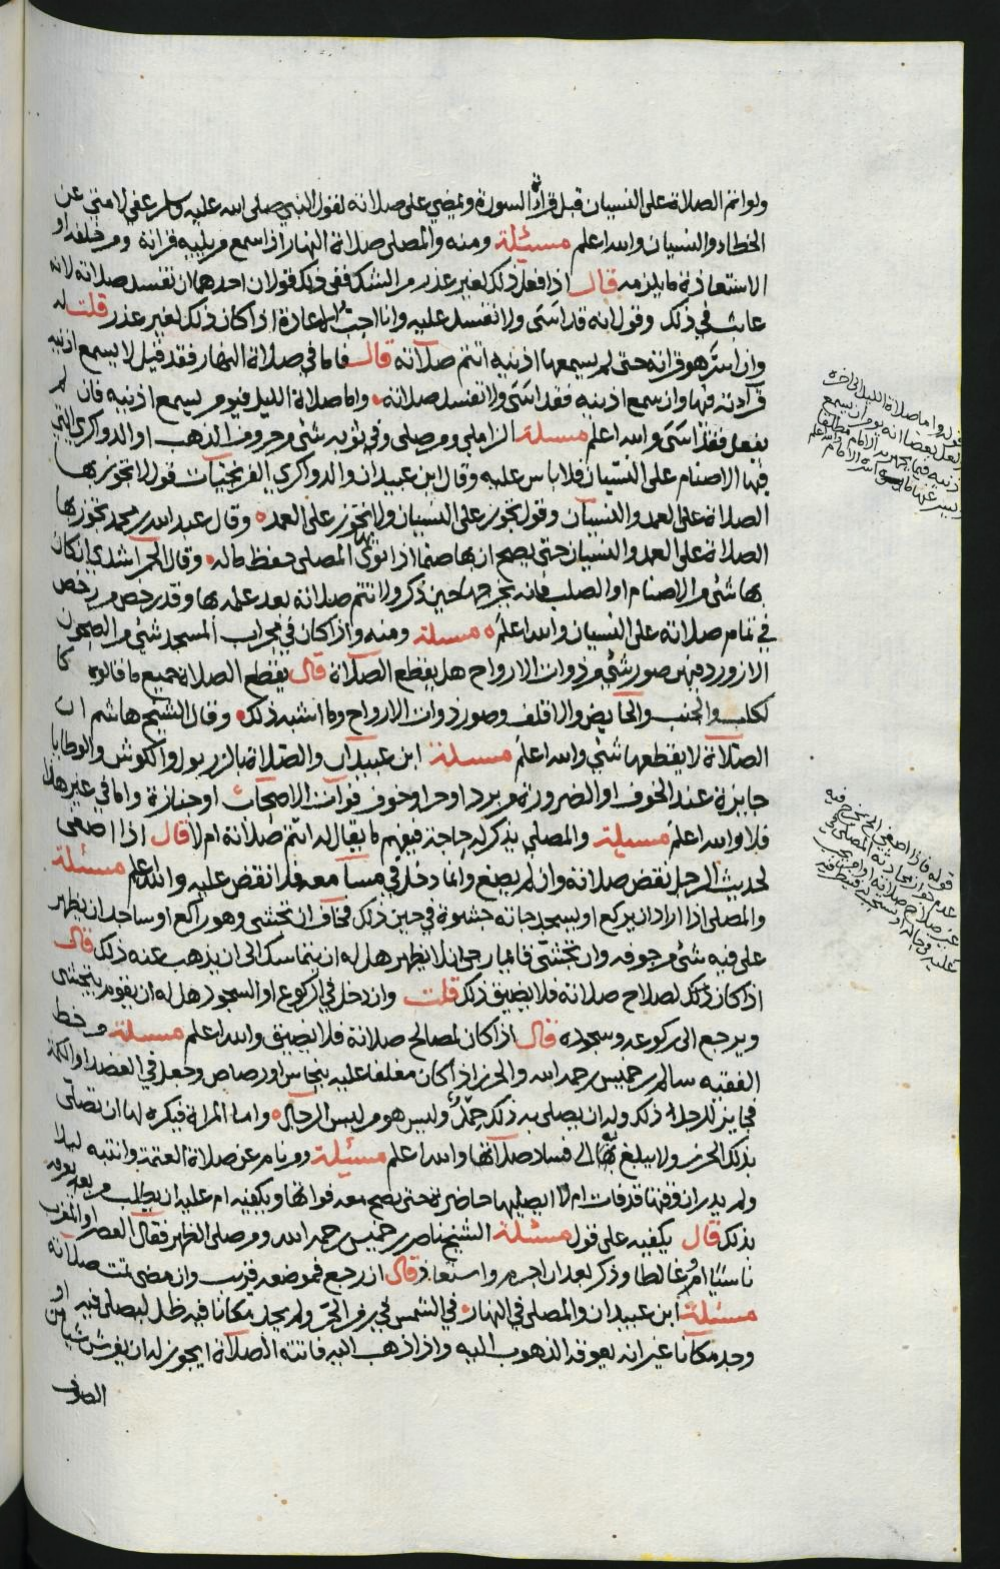 ولو اتم الصلاة على النسيان قبل قراة السورة ويمضي على صلاته لقول النبي صلى الله عليه وسلم عفي لامتي عن
الخطاء والنسيان والله اعلم مسئلة ومنه والمصلي صلاة النهار اذا سمع من يليه قراته ومن خلفه او
الاستعاذة ما يلزمه قال اذا فعل ذلك لغير عذر من الشك ففي ذلك قولان احدهما ان تفسد صلاته لانه
عابث في ذلك وقول انه قد اسَى ولا تفسد عليه وانا احب له الاعادة اذا كان ذلك لغير عذر قلت له
وان اسَرَّ هو قراته حتى لم يسمعها اذنيه اتتم صلاته قال فاما في صلاة النهار فقد قيل لا يسمع اذنيه
قرآدته فيها وان سمع اذنيه فقد اسَى ولا تفسد صلاته واما صلاة الليل فيؤمر يسمع اذنيه فان لم
يفعل فقد اسَى والله اعلم مسئلة الزاملي ومن صلى وفي ثوبه شئ من حروف الذهب او الدواكري التي
فيها الاصنام على النسيان فلا باس عليه وقال ابن عبيدان والدواكري الفرنجيات قول لا تجوز بها
الصلاة على العمد والنسيان وقول تجوز على النسيان ولا تجوز على العمد وقال عبد الله بن محمد تجوز بها
الصلاة على العمد والنسيان حتى يصح ان بها صنما اذا نوى المصلي حفظ ماله وقال الحراشدي ان كان
بها شئ من الاصنام او الصلب فانه يخرجها حين ذكر ولا تتم صلاته بعد علمه بها وقد رخص من رخص
في تمام صلاته على النسيان والله اعلم مسئلة ومنه واذا كان في محراب المسجد شئ من الصحون
الازورد فيهن صور شئ من ذوات الارواح هل يقطع الصلاة قال يقطع الصلاة جميع ما قالوه كا
لكلب والجنب والحايض والاقلف وصور ذوات الارواح وما اشبه ذلك وقال الشيخ هاشم ان
الصلاة لا يقطعها شئ والله اعلم مسئلة ابن عبيدان والصلاة بالزربول او الكوش والوطايا
جايزة عند الخوف او الضرورة من برد او حر او خوف فوات الاصحاب او جنازة واما في غير هذا
فلا والله اعلم مسيلة والمصلي يذكر له حاجة فيفهم ما يقال له اتتم صلاته ام لا قال اذا اصغى
لحديث الرجل نقض صلاته وان لم يصغ وانما دخل في مسامعه فلا نقض عليه والله اعلم مسئلة
والمصلي اذا اراد ان يركع او يسجد جاته جشوة في حين ذلك فخاف ان تجشى وهو راكع او ساجد ان يظهر
على فيه شئ من جوفه وان تجشى قايما رجى ان لا يظهر هل له ان يتماسك الى ان يذهب عنه ذلك قال
اذا كان ذلك لصلاح صلاته فلا يضيق ذلك قلت وان دخل في الركوع او السجود هل له ان يقوم يتجشى
ويرجع الى ركوعه وسجوده قال اذا كان لمصالح صلاته فلا يضيق والله اعلم مسئلة ومن خط
الفقيه سالم بن خميس رحمه الله والحرز اذا كان مغلفا عليه بنحاس او رصاص وجعل في العضد او الكمة
فجايز للرجل ذلك وله ان يصلي به وليس هو من لبس الرجال واما المراة فيكره لها ان تصلي
بذلك الحرز ولا يبلغ بها الى فساد صلاتها والله اعلم مسئلة ومن نام عن صلاة العتمة وانتبه ليلا
ولم يدر ان وقتها قد فات ام لا ايصليها حاضرة حتى يصح معه فواتها ويكفيه ام عليه ان يطلب من يعرفه
بذلك قال يكفيه على قول مسئلة الشيخ ناصر بن خميس رحمه الله ومن صلى الظهر فقال العصر او المغرب
ناسيا ام غالطا وذكر بعد ان احرم واستعاذ قال ان رجع فموضعه قريب وان مضى تمت صلاته
مسئلة ابن عبيدان والمصلي في النهار في الشمس في الحر ولم يجد مكانا فيه ظل ليصلي فيه او
وجد مكانا غير انه يعوقه الذهوب اليه واذا ذهب اليه فاتته الصلاة ايجوز له ان يفرش شيا من
الصوف
قوله واما صلاة الليل الى اخره